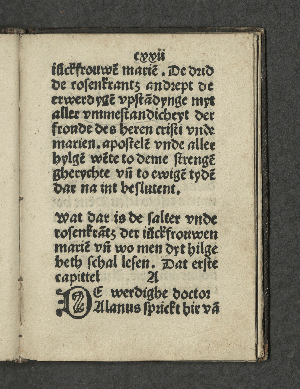 cxxii
iūckfrouwē mariē. De drid
de rosenkrantz andrept de
erwerdygē vpstādynge myt
aller vmmestandicheyt der
fronde des heren cristi vnde
marien. apostelē vnde aller
hylgē wēte to deme strengē
gherychte vñ to ewigē tydē
dar na int beslutent.
Wat dar is de salter vnde
rosenkrātz der iūckfrouwen
mariē vñ wo men dyt hilge
beth schal lesen. Dat erste
capittel A
DE werdighe doctor
Alanus sprickt hir vā